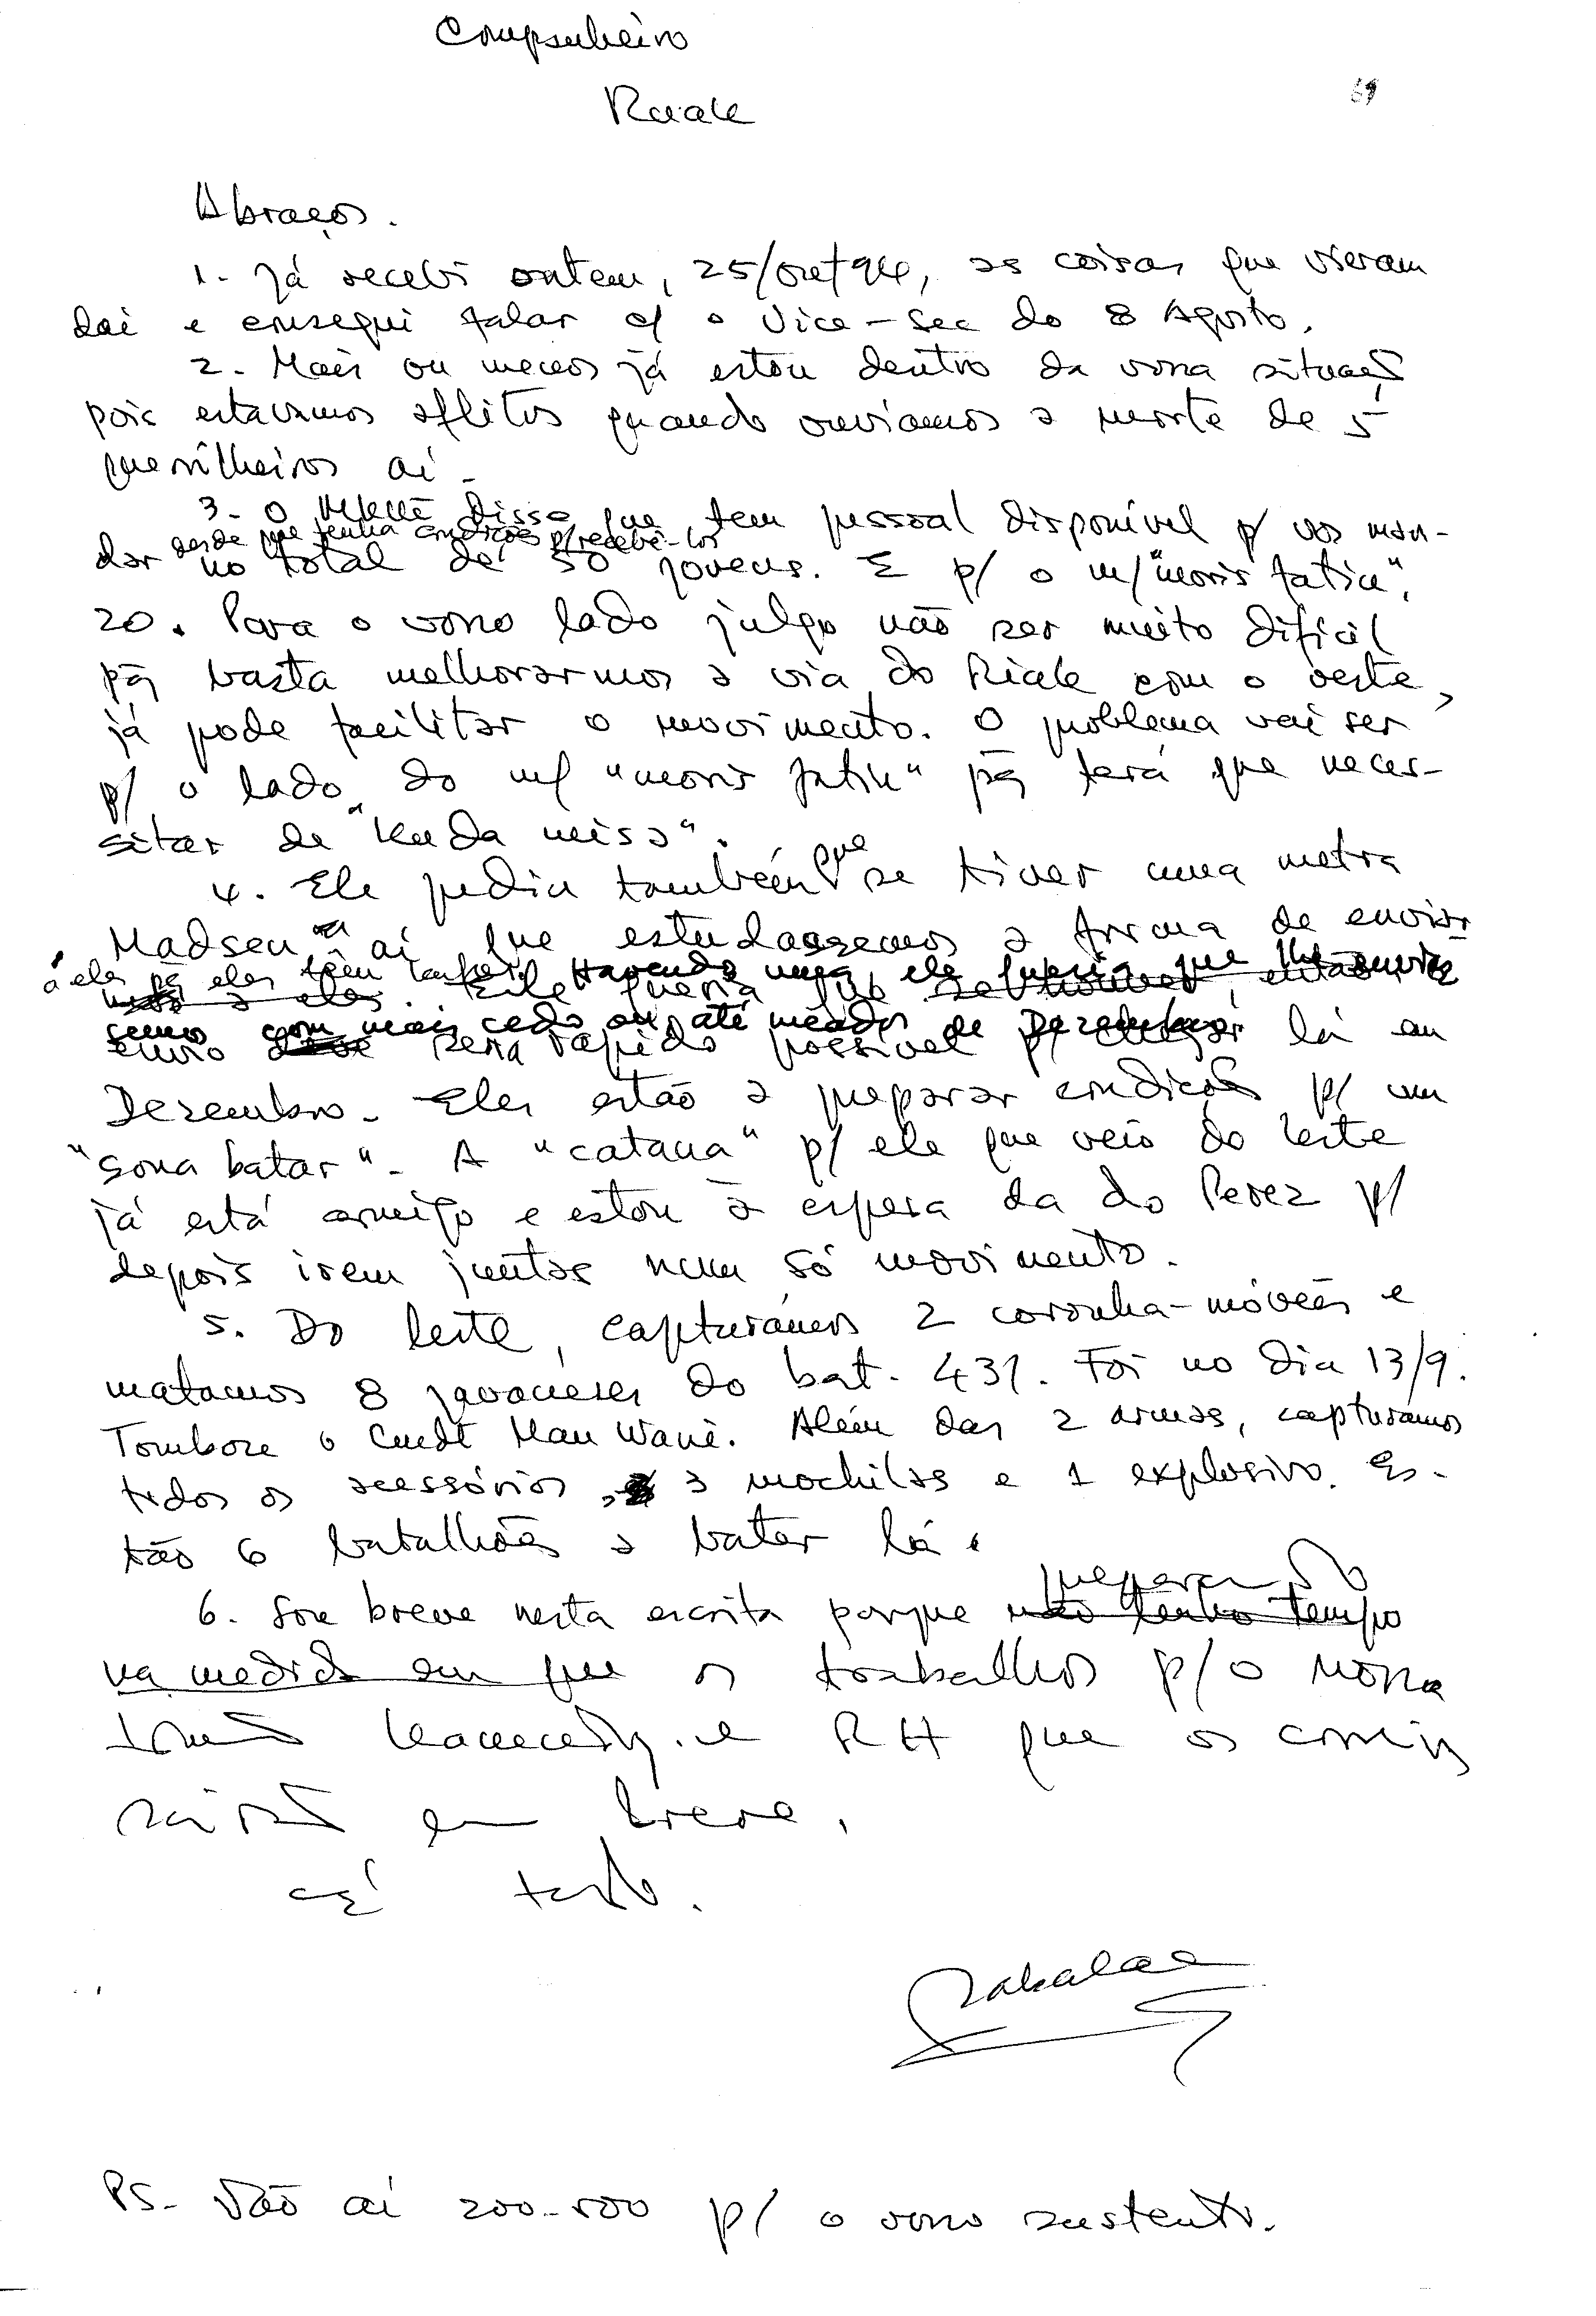 Companheiro
Riak
Abraços.
1. Já recebi ontem, 25/out/94, as coisas que vieram
daí e consegui falar c/ o Vice-Sec do 8 Agosto.
2. Mais ou menos já estou dentro da vossa situação
pois estávamos aflitos quando ouvíamos a morte de 5
guerrilheiros aí.
3. O disse que tem pessoal disponível p/ vos man-
desde que tenha condições p/ recebê-los
dar no total de 50 jovens. E p/ o m/ "moris fatin",
20. Para o vosso lado julgo não ser muito difícil
pq basta melhorarmos a via do Riak com o oeste,
já pode facilitar o movimento. O problema vai ser
p/ o lado do m/ "moris fatin" pq terá que neces-
sitar de "kuda meisa".
4. Ele pediu também que se tiver uma metra
Madsen aí que estudássemos a forma de enviar
à eles pq eles têm Havendo uma ele queria que lhe envia
Ele queria que
semos mais cedo ou até meados de Dezembro
envio seria rápido possível p/ chegar lá em
Dezembro. Eles estão a preparar condições p/ um
"sona batar". A "catana" p/ ele que veio do leste
já está comigo e estou à espera da do Perez p/
depois irem juntas num só movimento.
5. Do leste, capturámos 2 coronha-móveis e
matamos 8 javaneses do bat. 431. Foi no dia 13/9.
Tombou o Cmdt Mau Wani. Além das 2 armas, capturámos
todos os acessórios, 3 mochilas e 1 explosivo. Es-
tão 6 batalhões a bater lá.
preparando
6. Sou breve nesta escrita porque não tenho tempo
na medida em que os trabalhos p/ o nosso
Irmão e RH que os
sairão em breve.
É tudo.
PS- Vão aí 200.500 p/ o vosso sustento.